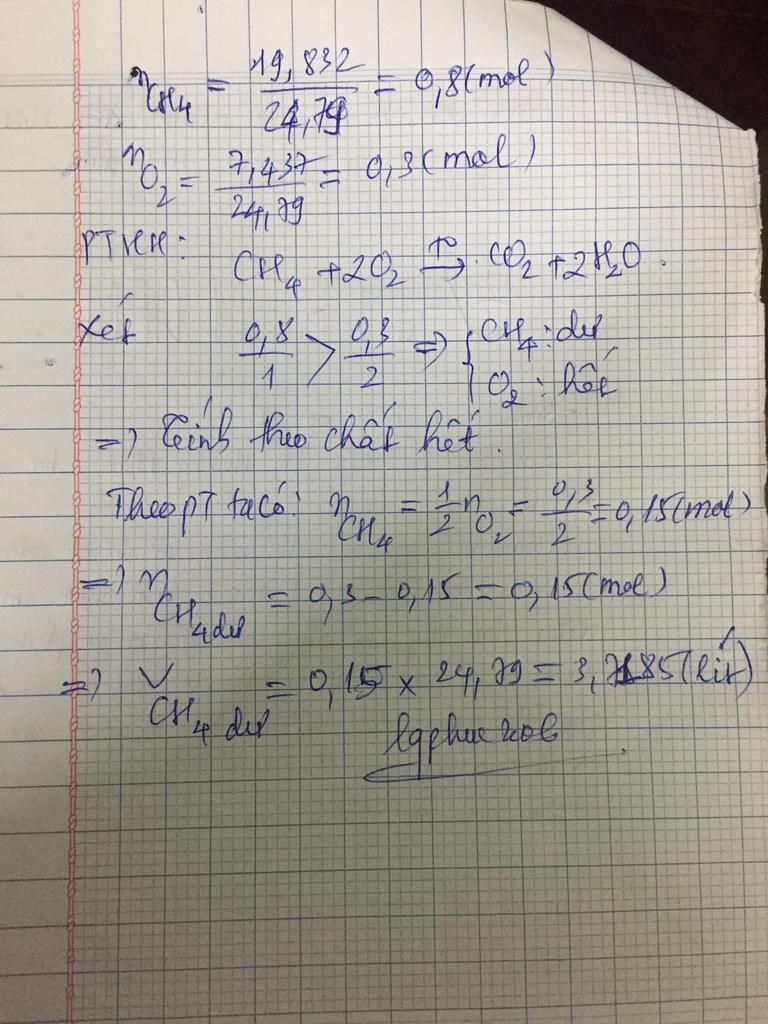 nCH₄ = 19,832/24,79 = 0,8(mol)
nO₂ = 7,437/24,79 = 0,3(mol)
PTHH: CH₄ + 2O₂ —t°→ CO₂ + 2H₂O.
Xét 0,8/1 > 0,3/2 => { CH₄: dư
O₂: hết
=> Tính theo chất hết.
Theo PT ta có: nCH₄ = 1/2 nO₂ = 0,3/2 = 0,15(mol)
=> nCH₄ dư = 0,3 - 0,15 = 0,15(mol)
=> VCH₄ dư = 0,15 x 24,79 = 3,7185(lít)